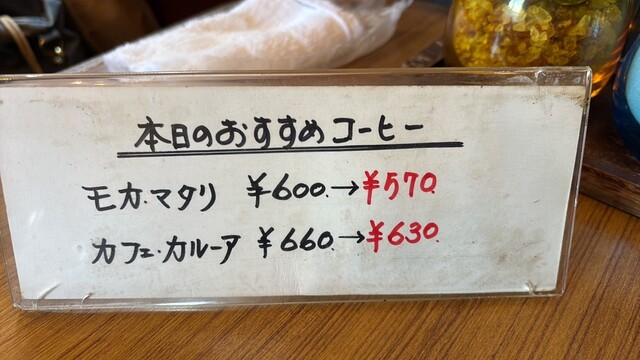 本日のおすすめコーヒー
モカ・マタリ ¥600.→¥570.
カフェ・カルーア ¥660.→¥630.